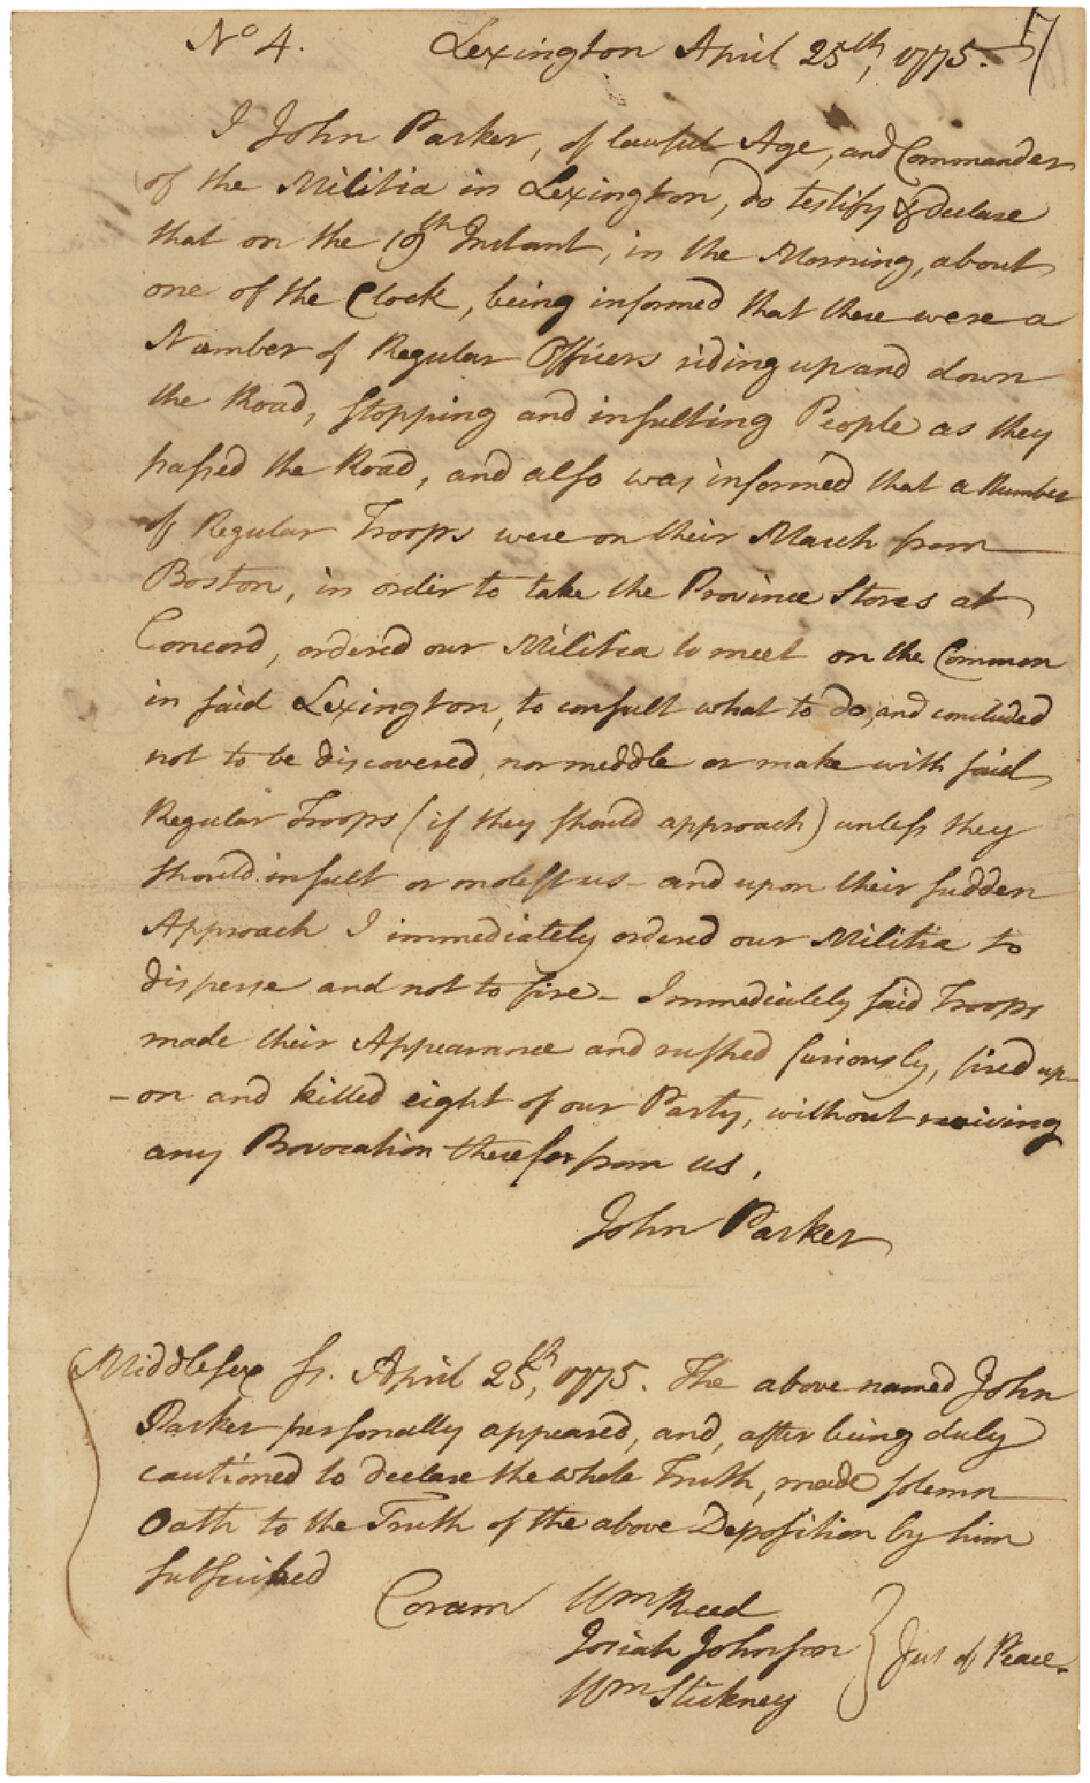 No 4. Lexington April 25th, 1775. 17
I John Parker, of lawful Age, and Commander
of the Militia in Lexington, do testify & declare
that on the 19th Instant, in the Morning, about
one of the Clock, being informed that there were a
Number of Regular Officers riding up and down
the Road, stopping and insulting People as they
passed the Road, and also was informed that a Number
of Regular Troops were on their March from
Boston, in order to take the Province Stores at
Concord, ordered our Militia to meet on the Common
in said Lexington, to consult what to do, and concluded
not to be discovered, nor meddle or make with said
Regular Troops (if they should approach) unless they
should insult or molest us - and upon their sudden
Approach I immediately ordered our Militia to
disperse and not to fire - Immediately said Troops
made their Appearance and rushed furiously, fired up-
-on and killed eight of our Party, without receiving
any Provocation therefor from us.
John Parker
Middlesex ss. April 25th, 1775. The above named John
Parker personally appeared, and, after being duly
cautioned to declare the whole Truth, made solemn
Oath to the Truth of the above Deposition by him
subscribed
Coram Wm Reed
Josiah Johnson } Jus of Peace.
Wm Stickney